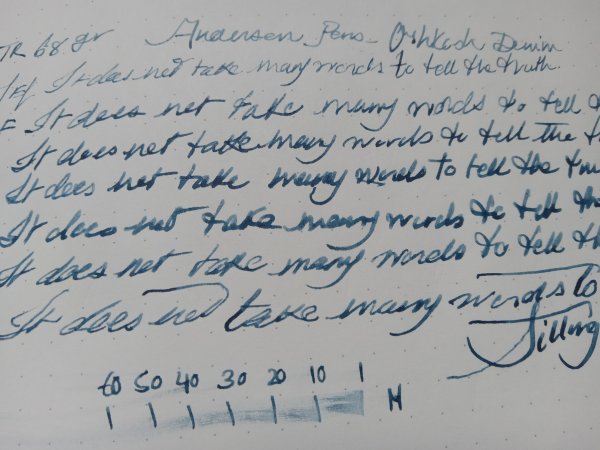 TR 68 gr Anderson Pens - Oshkosh Denim
/EF/ It does not take many words to tell the truth.
F It does not take many words to tell
It does not take many words to tell the
It does not take many words to tell the
It does not take many words to tell the
It does not take many words to tell the
It does not take many words to
60 50 40 30 20 10 1 M